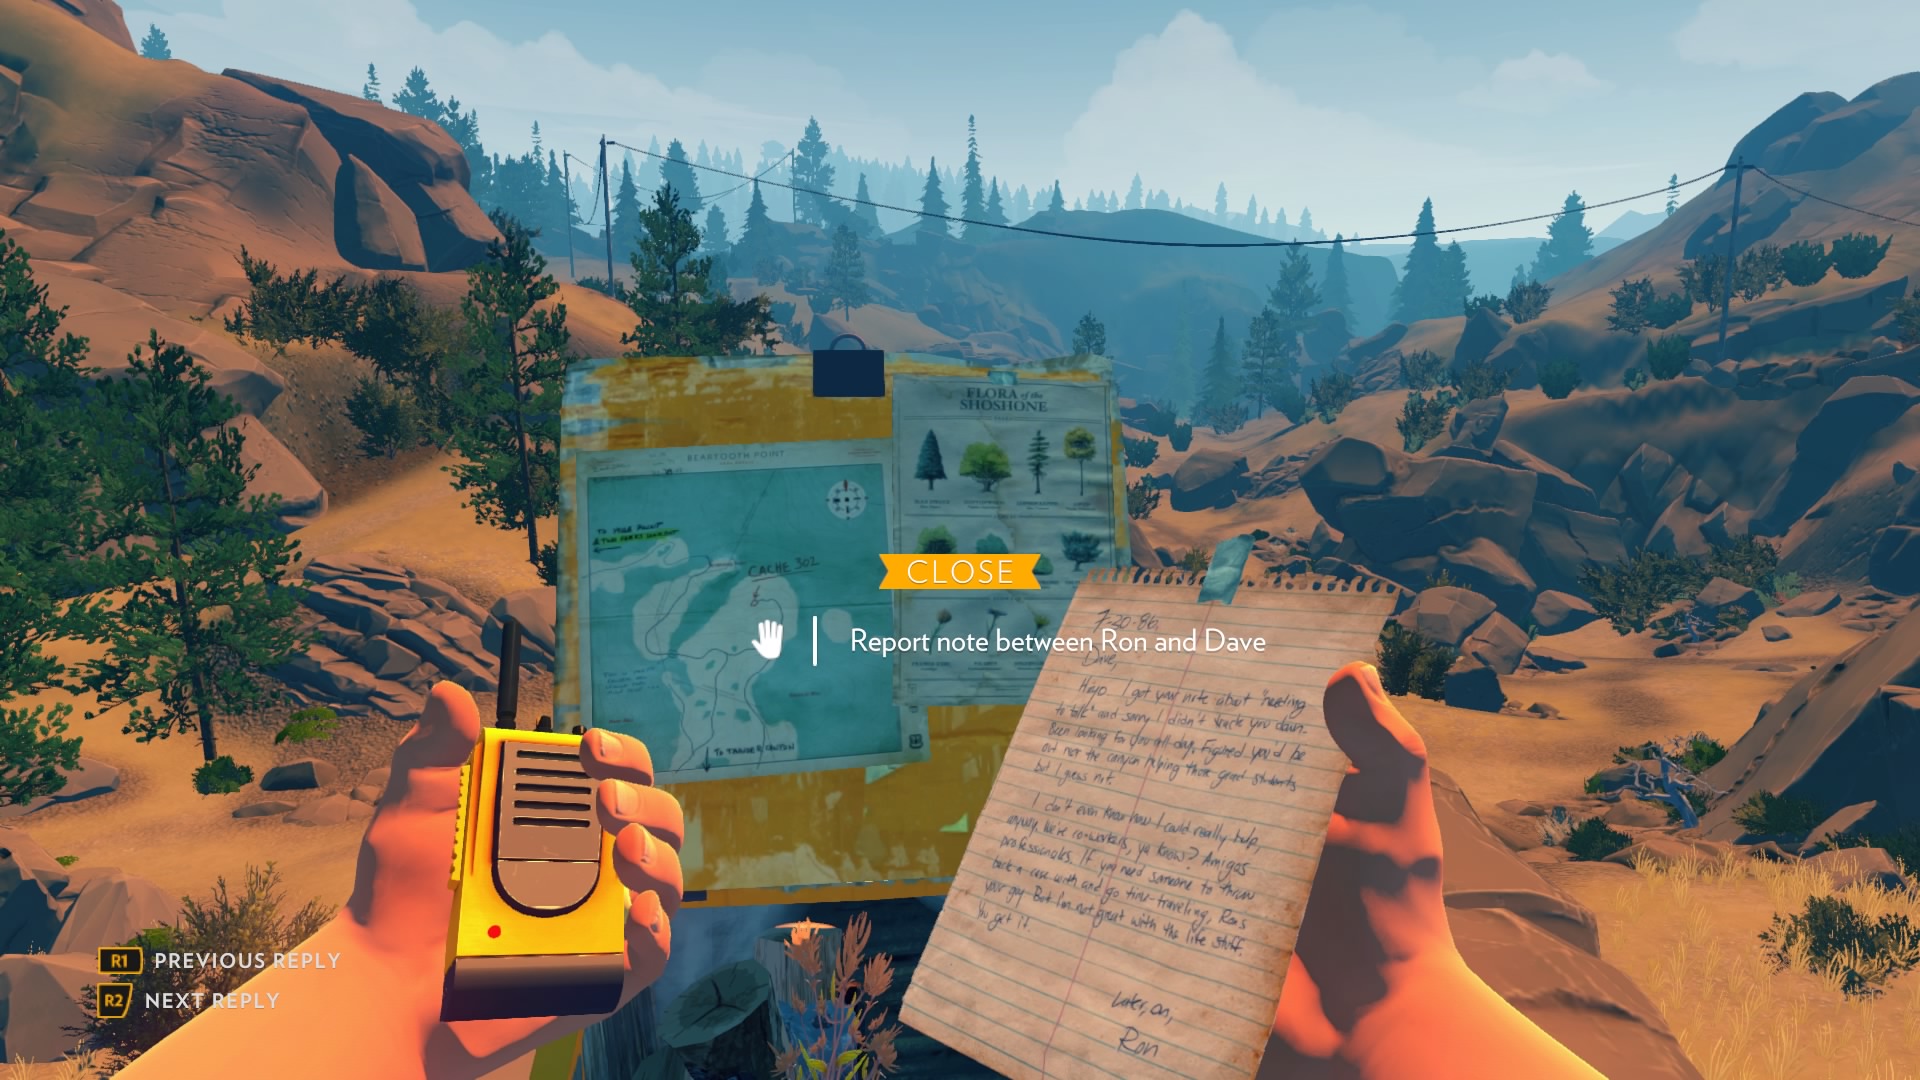 FLORA of the
SHOSHONE
BEARTOOTH POINT
CACHE 302
CLOSE
Report note between Ron and Dave
7-20-86
Dave,
Heyo. I got your note about "needing
to talk" and sorry I didn't track you down.
Been looking for you all day. Figured you'd be
out near the canyon helping those grad students
but I guess not.
I don't even know how I could really help,
anyway. We're co-workers, ya know? Amigos
professionales. If you need someone to throw
back a case with and go time-traveling, Ron's
your guy. But I'm not great with the life stuff.
You get it.
Later on,
Ron
R1 PREVIOUS REPLY
R2 NEXT REPLY